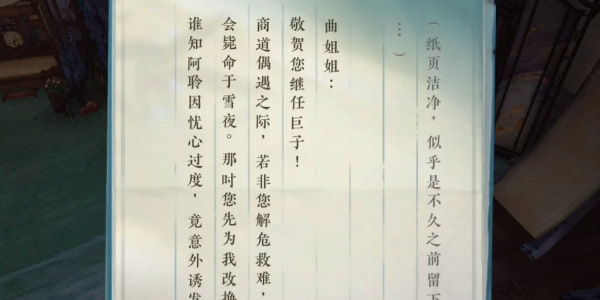 （纸页洁净，似乎是不久之前留下
…）
曲姐姐：
敬贺您继任巨子！
商道偶遇之际，若非您解危救难，
会毙命于雪夜。那时您先为我改换
谁知阿聆因忧心过度，竟意外诱发